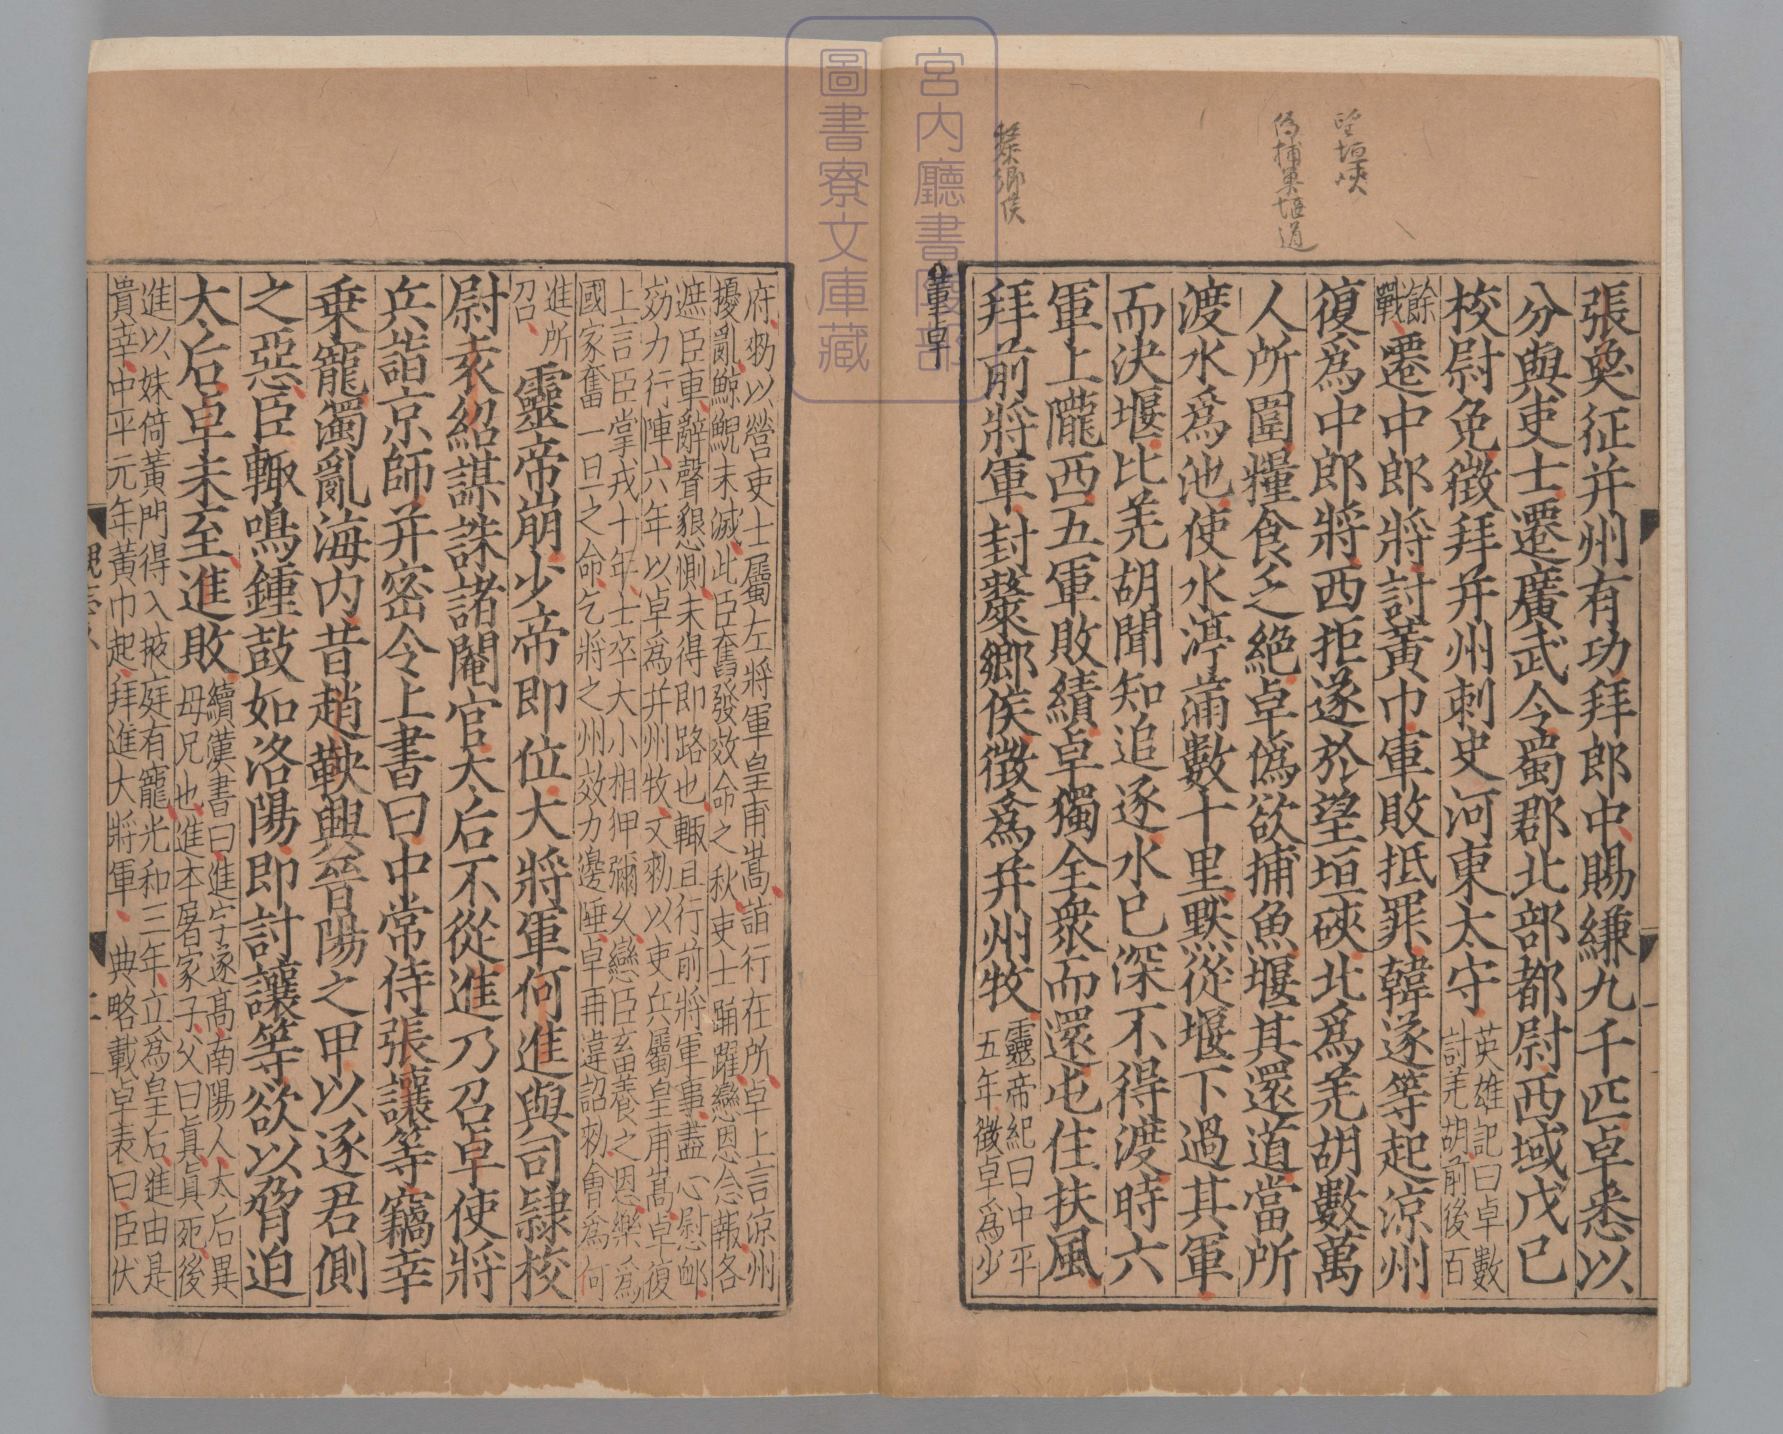 望垣硤
偽捕魚堰道
斄鄉侯
宮內廳書陵部
圖書寮文庫藏
張奐征并州有功拜郎中賜縑九千匹卓悉以
分與吏士遷廣武令蜀郡北部都尉西域戊己
校尉免徵拜并州刺史河東太守
英雄記曰卓數
討羌胡前後百
餘
戰
遷中郎將討黃巾軍敗抵罪韓遂等起涼州
復爲中郎將西拒遂於望垣硤北爲羌胡數萬
人所圍糧食乏絶卓僞欲捕魚堰其還道當所
渡水爲池使水渟滿數十里默從堰下過其軍
而決堰比羌胡聞知追逐水已深不得渡時六
軍上隴西五軍敗績卓獨全衆而還屯住扶風
拜前將軍封斄鄉侯徵爲并州牧
靈帝紀曰中平
五年徵卓爲少
董卓
府勑以營吏士屬左將軍皇甫嵩詣行在所卓上言涼州
擾亂鯨鯢未滅此臣奮發效命之秋吏士踊躍戀恩念報各
遮臣車辭聲懇惻未得即路也輒且行前將軍事盡心慰卹
効力行陣六年以卓爲并州牧又勑以吏兵屬皇甫嵩卓復
上言臣掌戎十年士卒大小相狎彌久戀臣畜養之恩樂爲
國家奮一旦之命乞將之州效力邊陲卓再違詔勑會爲何
進所
召
靈帝崩少帝即位大將軍何進與司隷校
尉袁紹謀誅諸閹官太后不從進乃召卓使將
兵詣京師并密令上書曰中常侍張讓等竊幸
乗寵濁亂海内昔趙鞅興晉陽之甲以逐君側
之惡臣輒鳴鍾鼓如洛陽即討讓等欲以脅迫
太后卓未至進敗
續漢書曰進字遂高南陽人太后異
母兄也進本屠家子父曰真真死後
進以妹倚黃門得入掖庭有寵光和三年立爲皇后進由是
貴幸中平元年黃巾起拜進大將軍 典略載卓表曰臣伏